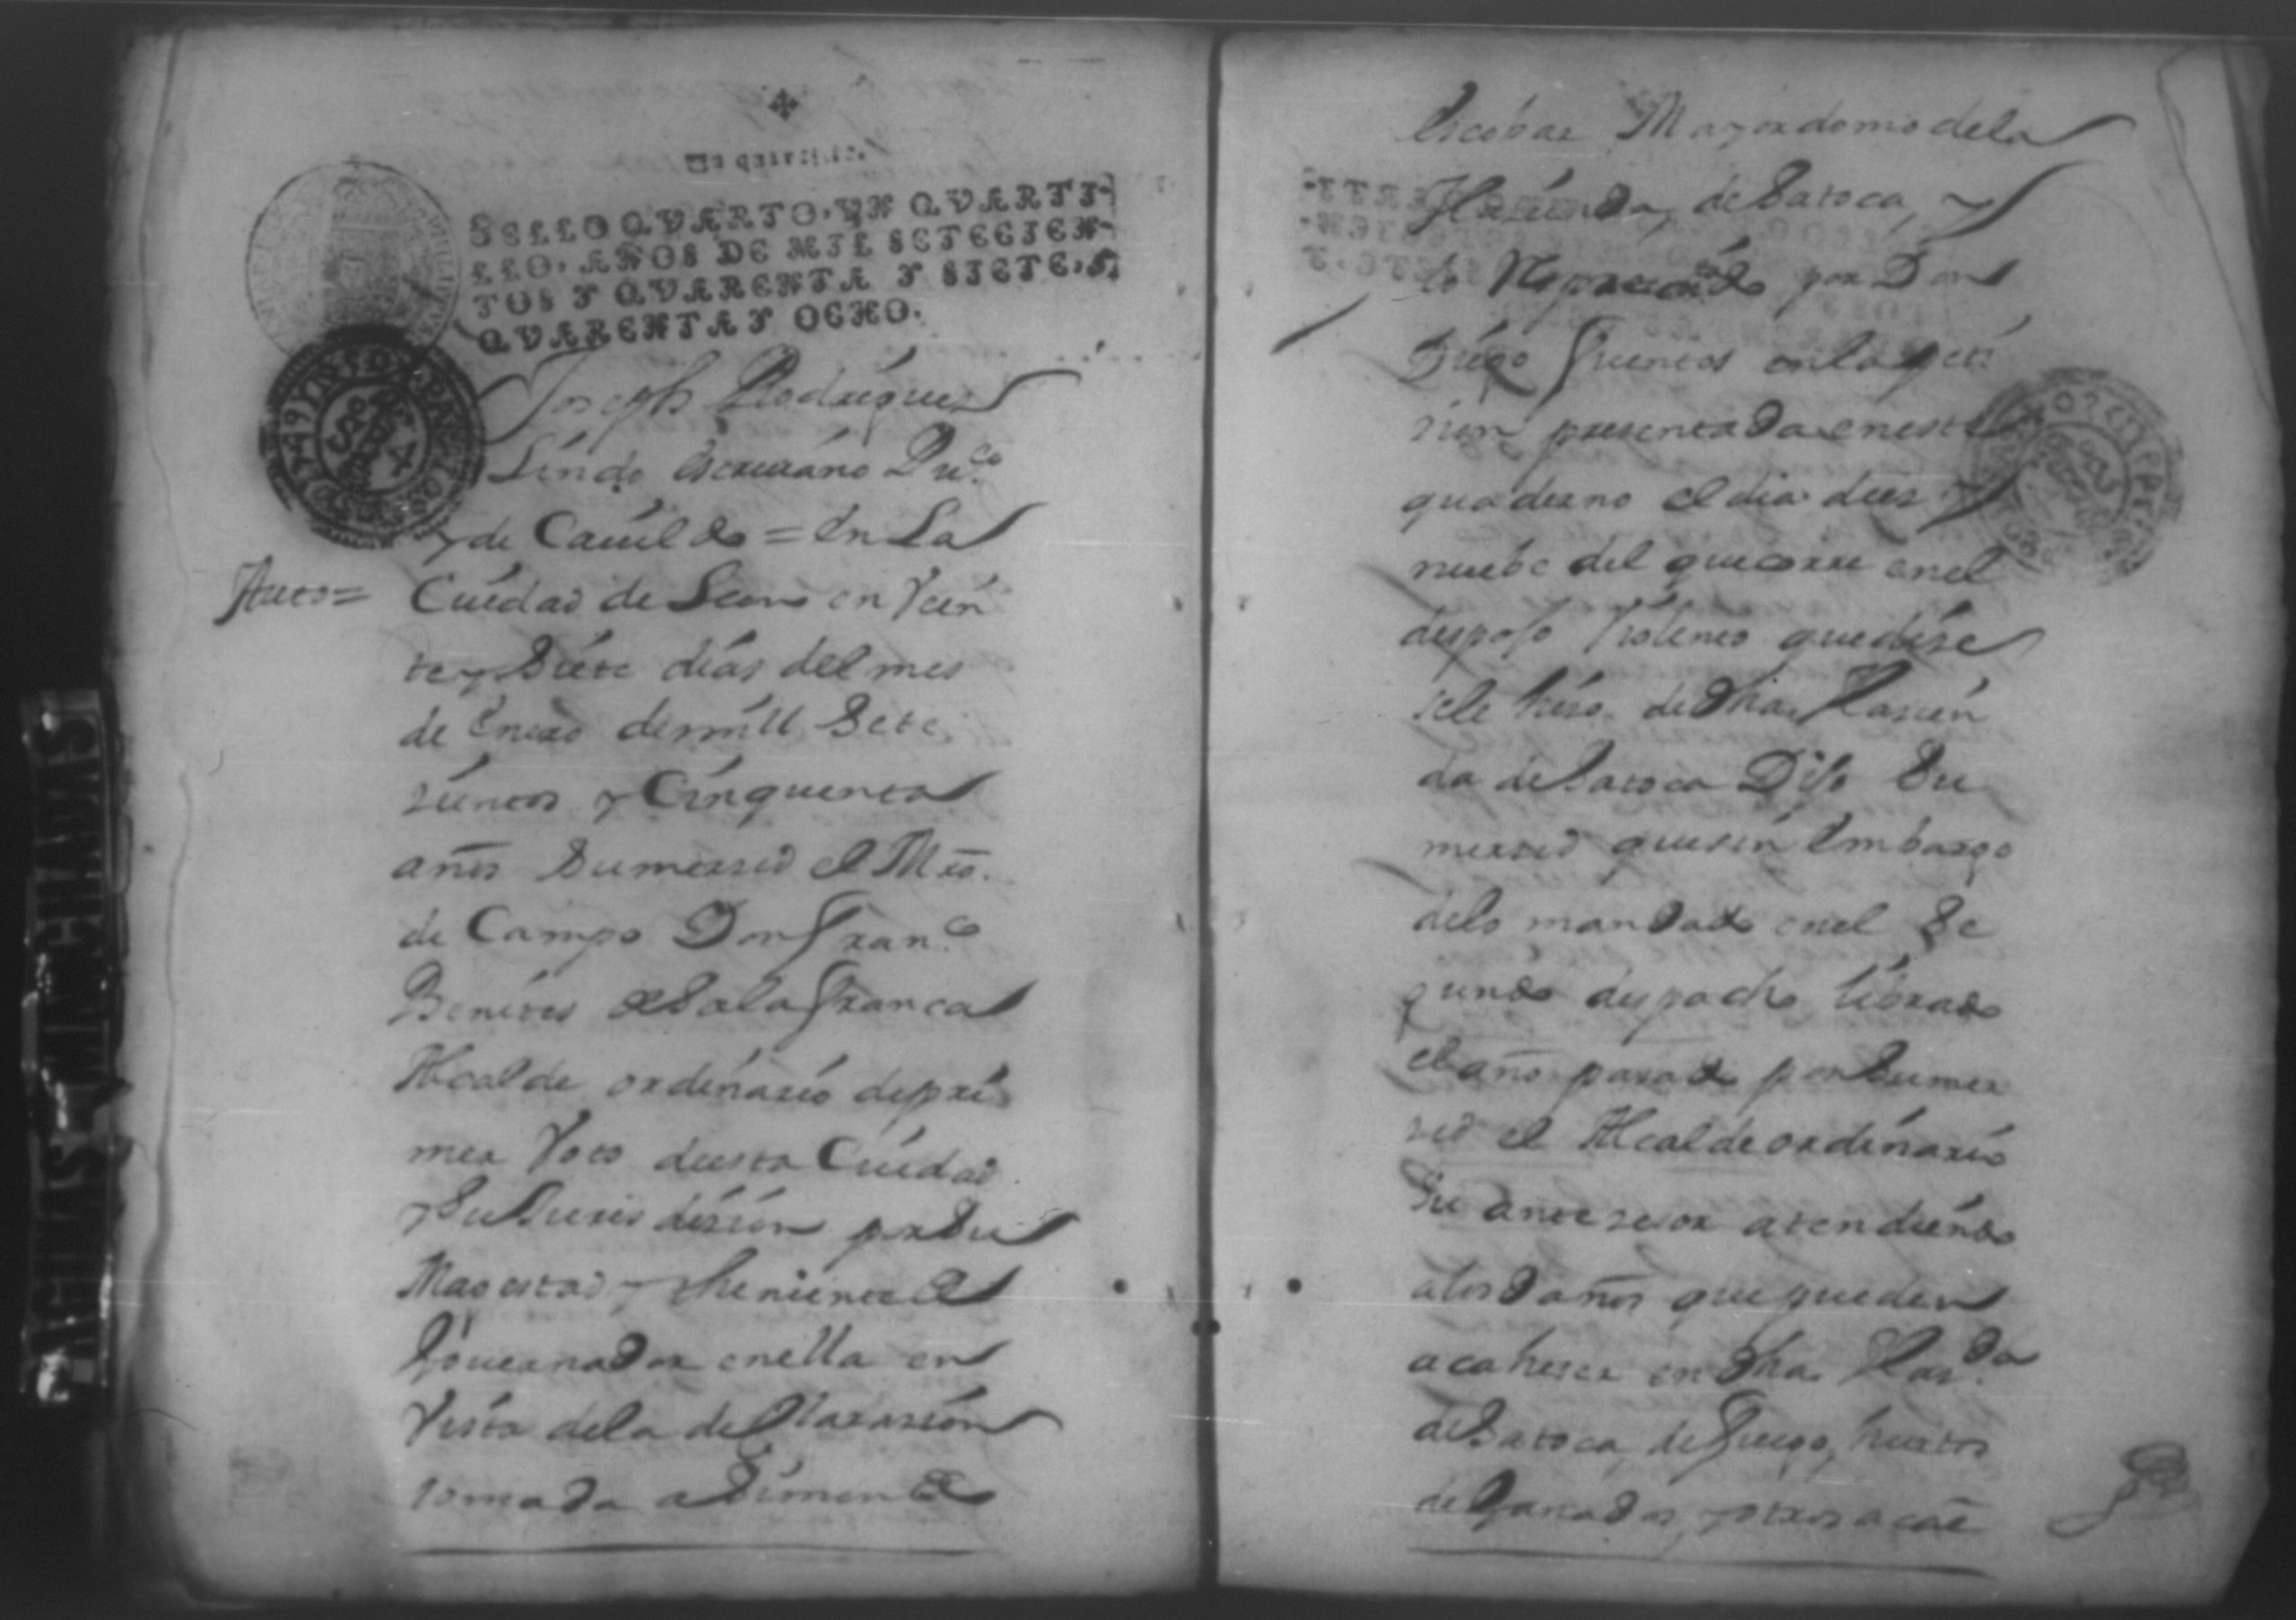 Un quartillo.
SELLO QVARTO, VN QVARTI-
LLO, AÑOS DE MIL SETECIEN-
TOS Y QVARENTA Y SIETE, Y
QVARENTA Y OCHO.
Joseph Rodriguez
Lindo escrivano Puco.
y de Cavildo = En La
Auto = Ciudad de Leon en Vein
te y Siete dias del mes
de Enero de mill Sete
sientos y Cinquenta
años Su mersed el Mro.
de Campo Don Franco.
Benites de Salafranca
Alcalde ordinario de pri
mer Voto de esta Ciudad
y Su Jurisdizion por Su
Magestad y Theniente de
Governador en ella en
Vista de la declarazion
tomada a Simon de
Escobar Mayordomo de la
Hazienda de Satoca, y
lo Representado por Don
Diego Fuentes en la peti
zion presentada en este
quaderno el dia diez y
nuebe del que corre en el
despojo Violento que dise
se le hiso de dha Hazien
da de Satoca Dijo Su
mersed que sin Embargo
de lo mandado en el Se
gundo despacho librado
el año pasado por Su mer
sed el Alcalde ordinario
Su antecesor atendiendo
a los daños que pueden
acaheser en dha Hazda.
de Satoca, de fuego, hurtos
de Ganados, y otros acae